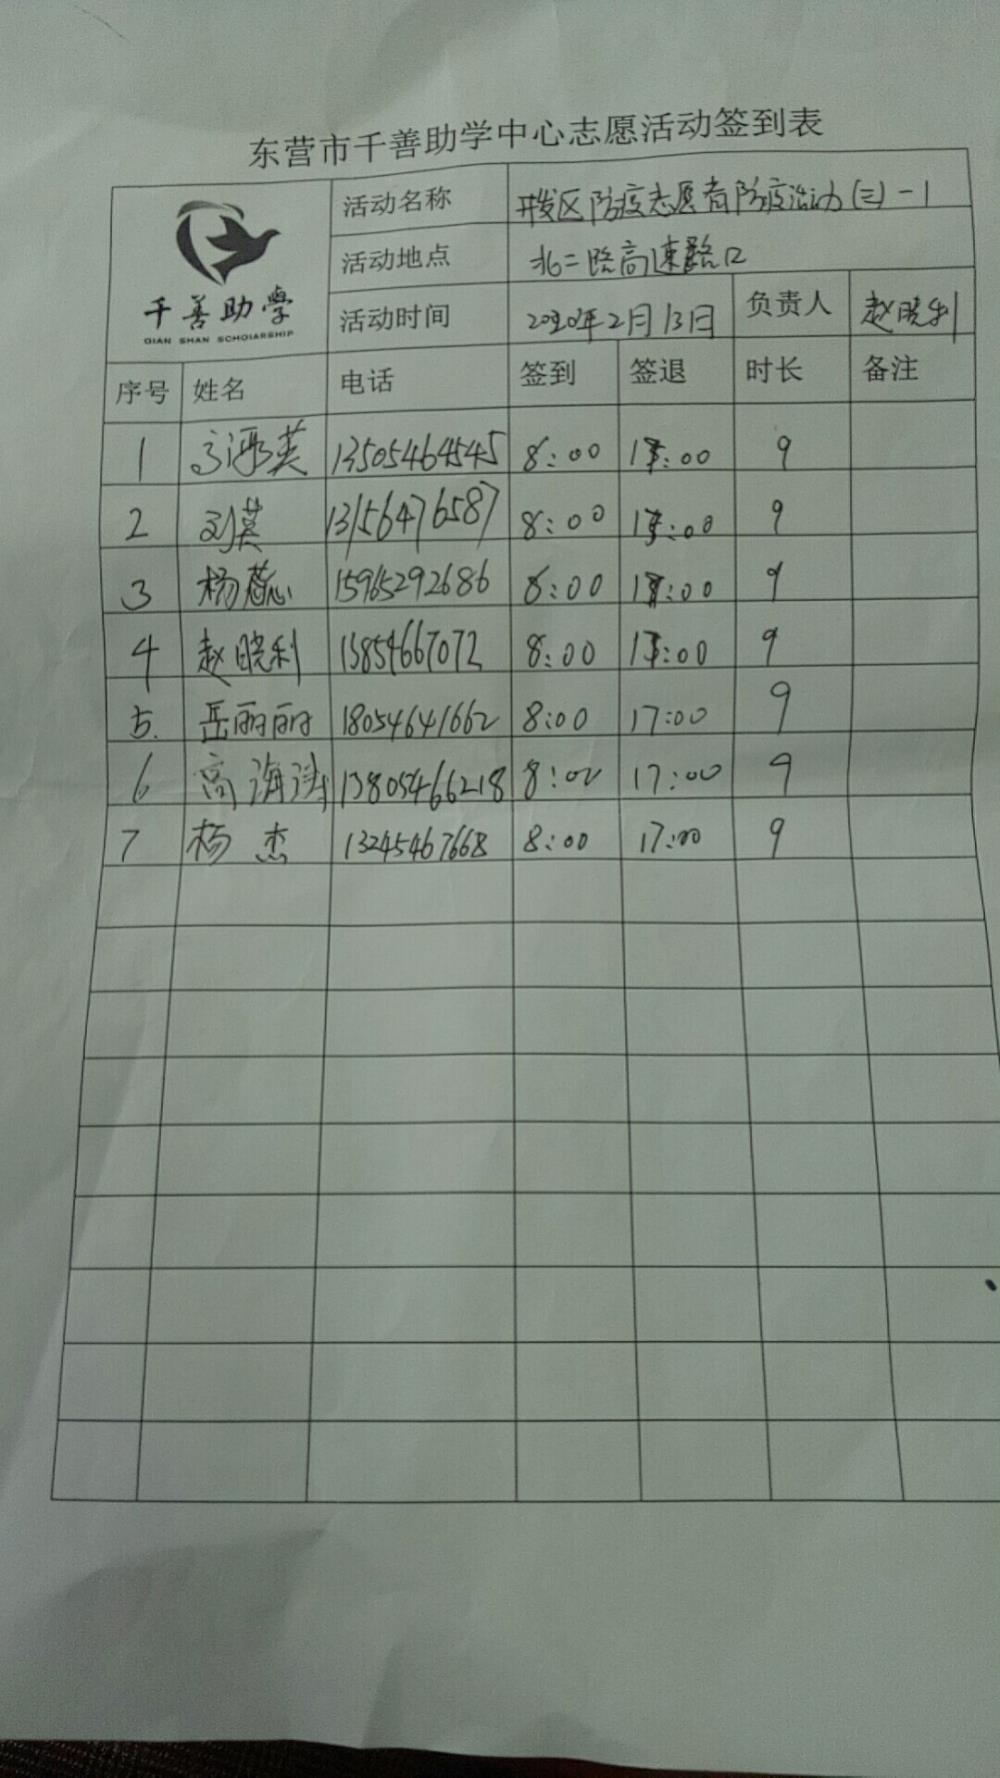 东营市千善助学中心志愿活动签到表
千善助學
QIAN SHAN SCHOlARSHIP
活动名称 开发区防疫志愿者防疫活动(三)-1
活动地点 北二路高速路口
活动时间 2020年2月13日 负责人 赵晓利
序号 姓名 电话 签到 签退 时长 备注
1 13505464545 8:00 17:00 9
2 刘英 13156476587 8:00 17:00 9
3 杨蕊 15965292686 8:00 17:00 9
4 赵晓利 13854667072 8:00 17:00 9
5. 岳丽丽 18054641662 8:00 17:00 9
6 高海涛 13805466218 8:00 17:00 9
7 杨杰 13245467668 8:00 17:00 9